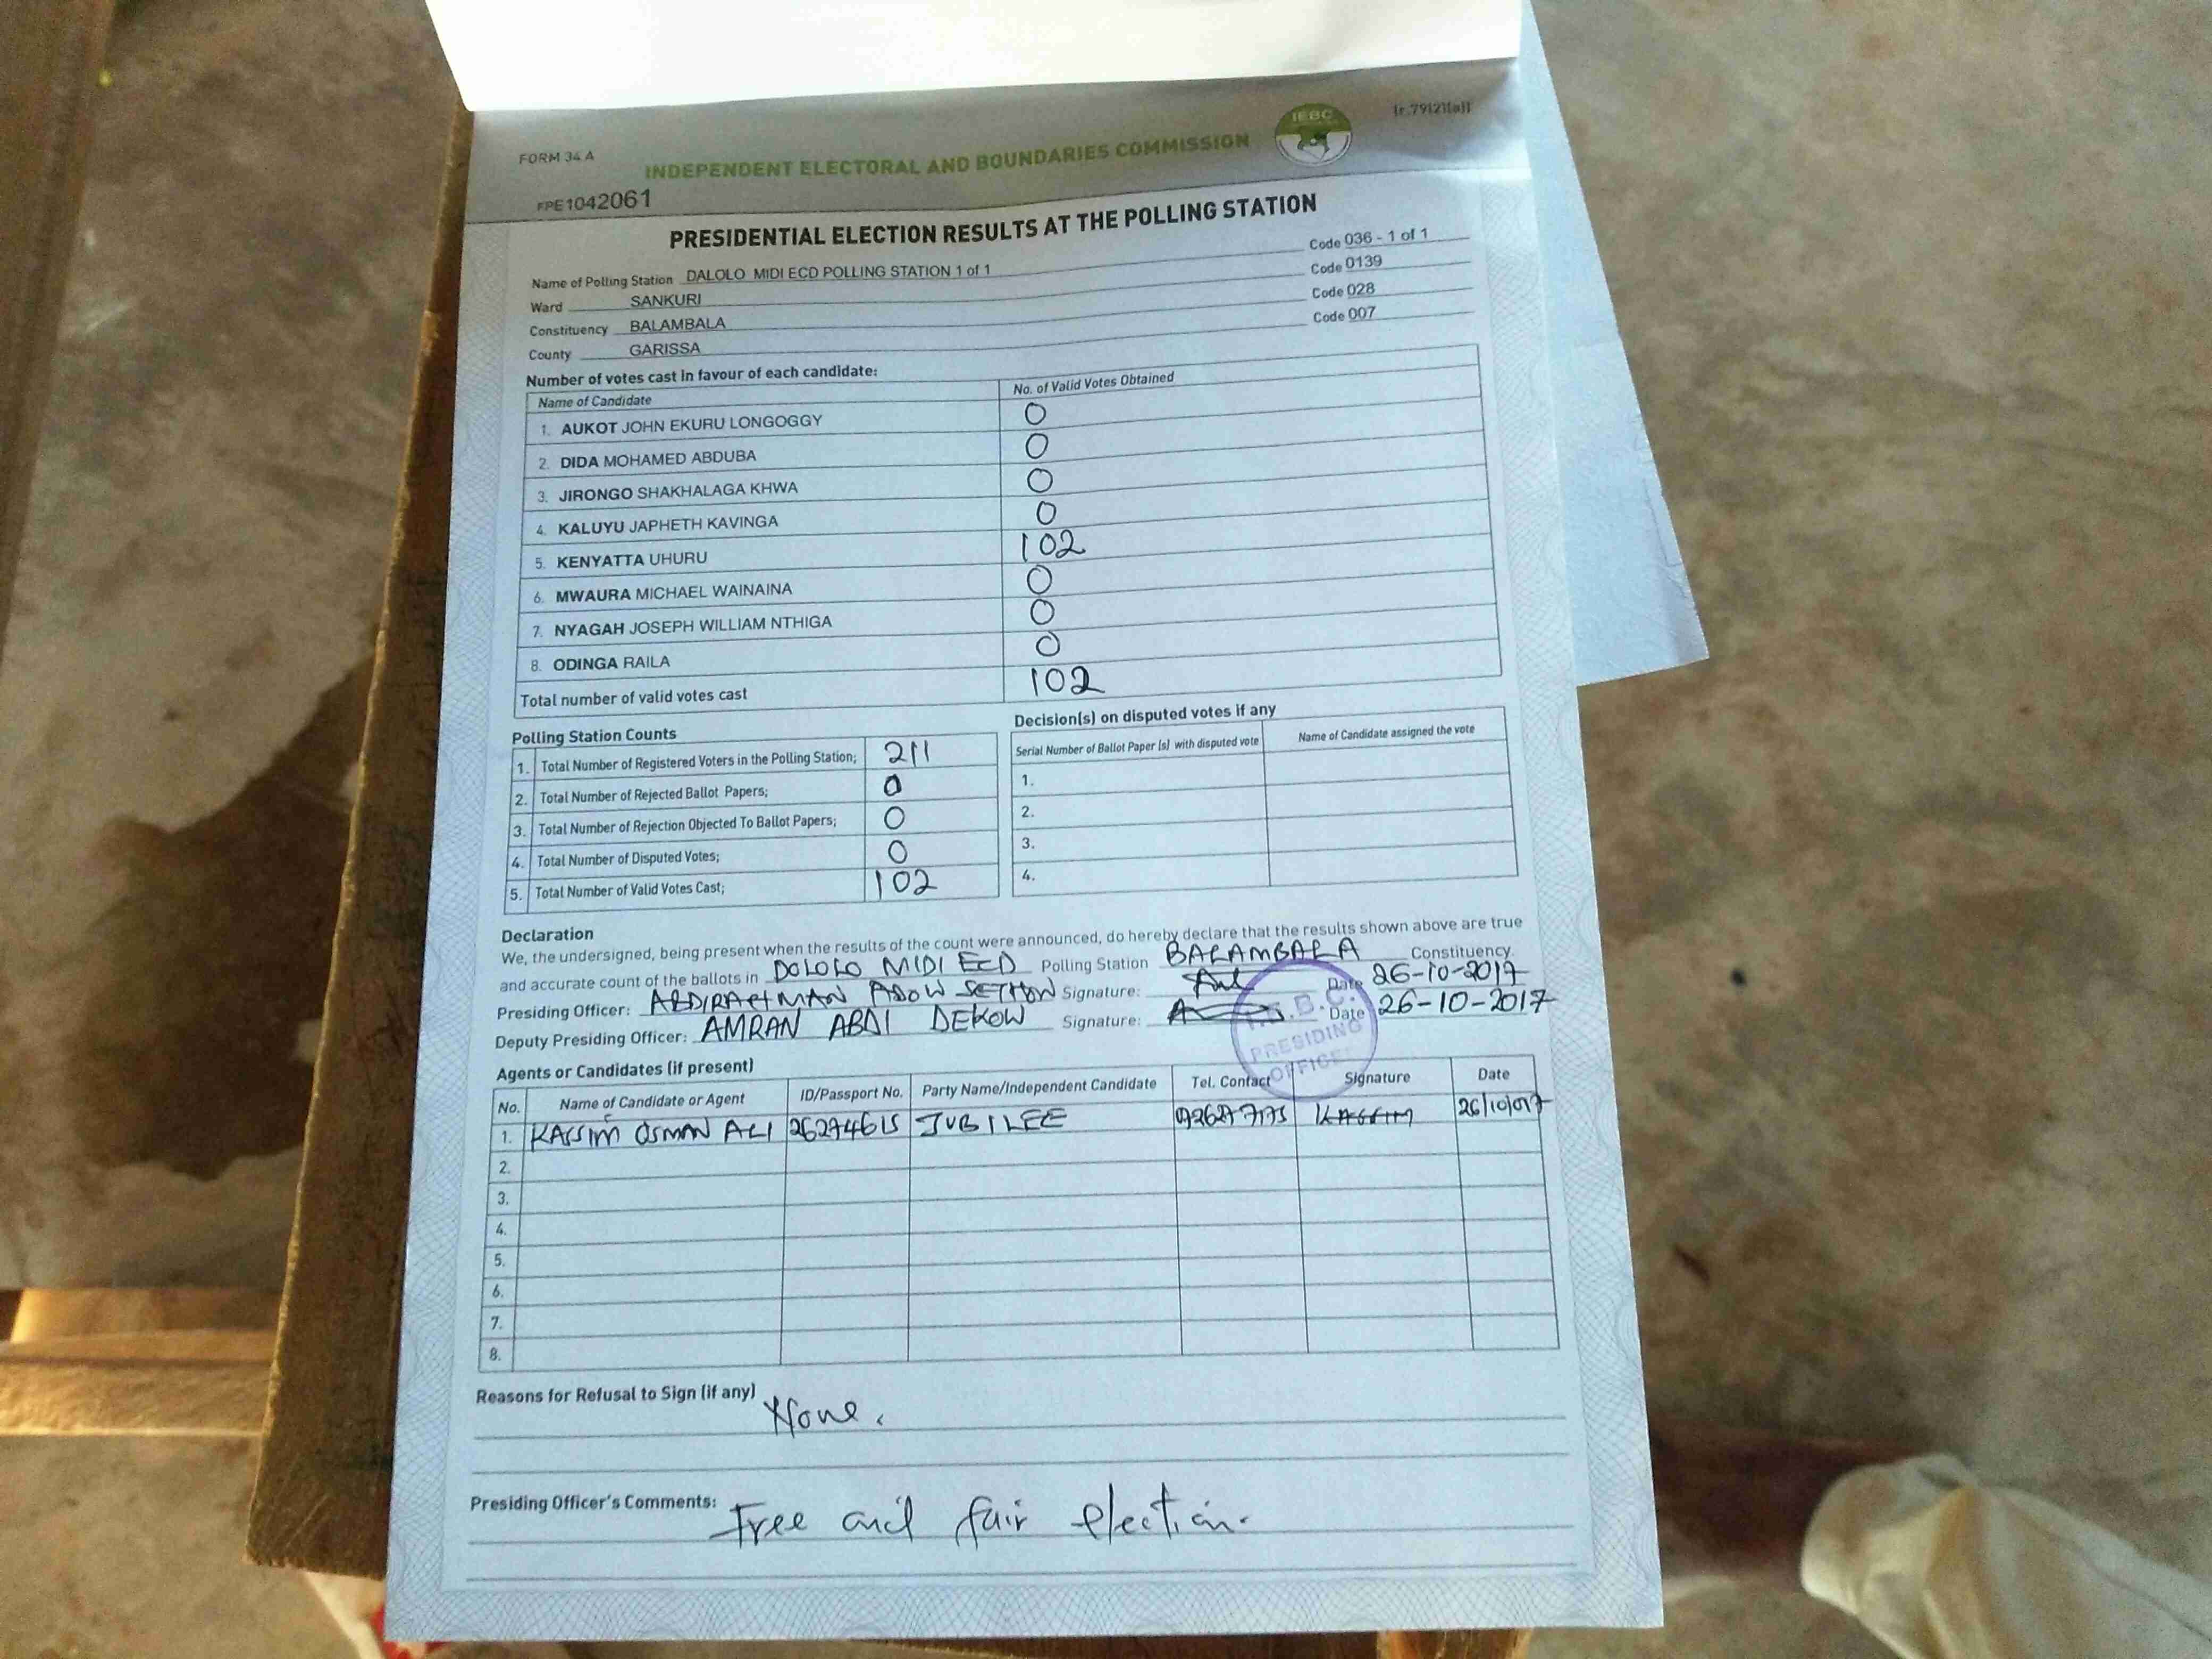 FORM 34 A
INDEPENDENT ELECTORAL AND BOUNDARIES COMMISSION
IEBC
(r.79(2)(a))
FPE1042061
PRESIDENTIAL ELECTION RESULTS AT THE POLLING STATION
Name of Polling Station DALOLO MIDI ECD POLLING STATION 1 of 1 Code 036 - 1 of 1
Ward SANKURI Code 0139
Constituency BALAMBALA Code 028
County GARISSA Code 007
Number of votes cast in favour of each candidate:
Name of Candidate No. of Valid Votes Obtained
1. AUKOT JOHN EKURU LONGOGGY 0
2. DIDA MOHAMED ABDUBA 0
3. JIRONGO SHAKHALAGA KHWA 0
4. KALUYU JAPHETH KAVINGA 0
5. KENYATTA UHURU 102
6. MWAURA MICHAEL WAINAINA 0
7. NYAGAH JOSEPH WILLIAM NTHIGA 0
8. ODINGA RAILA 0
Total number of valid votes cast 102
Polling Station Counts
1. Total Number of Registered Voters in the Polling Station; 211
2. Total Number of Rejected Ballot Papers; 0
3. Total Number of Rejection Objected To Ballot Papers; 0
4. Total Number of Disputed Votes; 0
5. Total Number of Valid Votes Cast; 102
Decision(s) on disputed votes if any
Serial Number of Ballot Paper (s) with disputed vote Name of Candidate assigned the vote
1.
2.
3.
4.
Declaration
We, the undersigned, being present when the results of the count were announced, do hereby declare that the results shown above are true
and accurate count of the ballots in DOLOLO MIDI ECD Polling Station BALAMBALA Constituency.
Presiding Officer: ABDIRAHMAN ADOW Signature: Date 26-10-2017
Deputy Presiding Officer: AMRAN ABDI DEKOW Signature: Date 26-10-2017
I.E.B.C.
PRESIDING
OFFICER
Agents or Candidates (if present)
No. Name of Candidate or Agent ID/Passport No. Party Name/Independent Candidate Tel. Contact Signature Date
1. KASSIM OSMAN ALI 26274615 JUBILEE KASSIM 26/10/017
2.
3.
4.
5.
6.
7.
8.
Reasons for Refusal to Sign (if any) None.
Presiding Officer's Comments: Free and fair election.